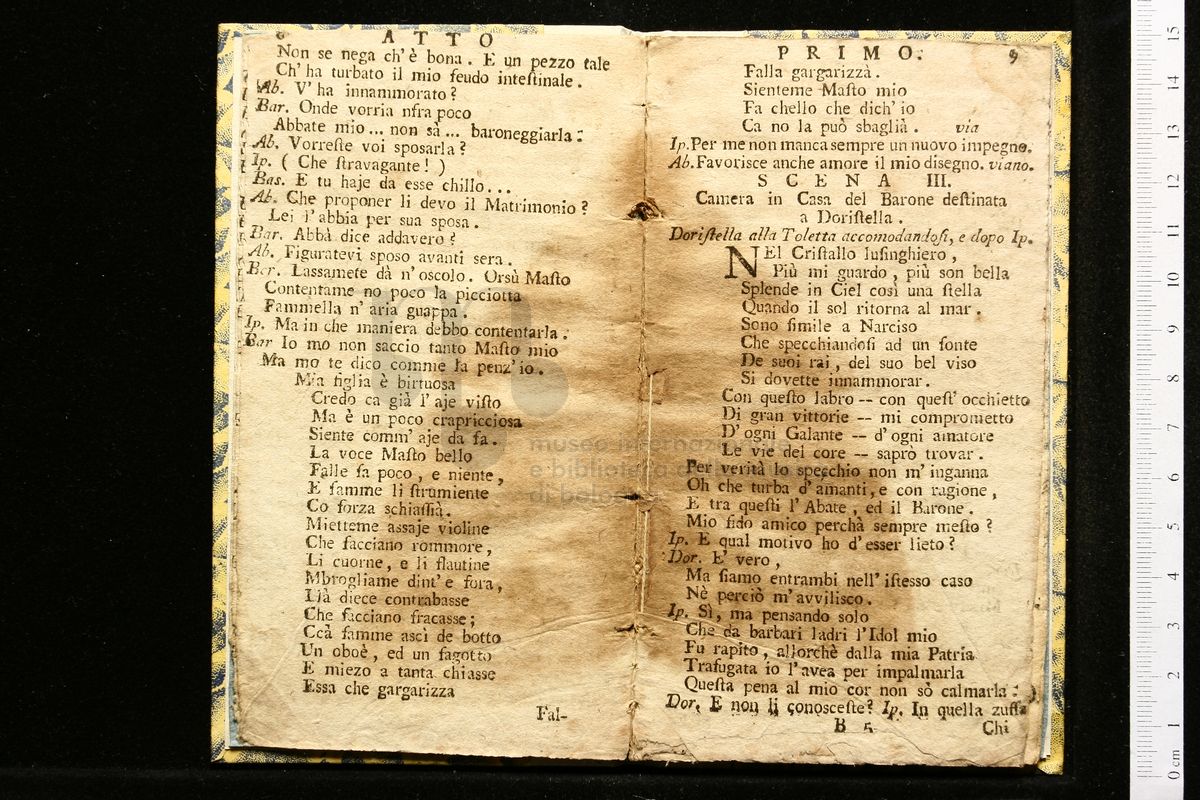 8 ATTO
Non se nega ch' è bona. E un pezzo tale
Ch' ha turbato il mio feudo inteſtinale.
Ab. V' ha innammorato?
Bar. Onde vorria nfra poco
Abbate mio ... non sà ... baroneggiarla:
Ab. Vorreſte voi spoſarla?
Ip. ( Che ſtravagante! )
Bas. E tu haje da esse chillo...
Ab. Che proponer li devo il Matrimonio?
Lei l'abbia per sua sposa.
Bar. Abbà dice addavero?
Ab. Figuratevi sposo avanti sera.
Bar. Lassamete dà n' oscolo. Orsù Maſto
Contentame no poco la picciotta
Fammella n' aria guappa.
Ip. Ma in che maniera debbo contentarla.
Bar Io mo non saccio tanto Maſto mio
Ma mo te dico comme ſa penz' io.
Mia figlia è birtuosa
Credo ca già l' aje viſto
Ma è un poco crapricciosa
Siente comm' aje da fa.
La voce Maſto bello
Falle fa poco, e niente,
E famme li ſtrumiente
Co forza schiaſſià.
Mietteme assaje violine
Che facciano rommore,
Li cuorne, e li flautine
Mbrogliame dint' e fora,
Llà diece contrabasse
Che facciano fracasse;
Ccà famme ascì de botto
Un oboè, ed un fagotto
E miezo a tanta chiasse
Essa che gargarizza
Fal-
PRIMO. 9
Falla gargarizzà.
Sienteme Maſto mio
Fa chello che dich' io
Ca no la può sbaglià. via
Ip. Per me non manca sempre un nuovo impegno.
Ab. Favorisce anche amore il mio disegno. viano.
SCENA III.
Camera in Casa del Barone deſtinata
a Doriſtella.
Doriſtella alla Toletta accomodandoſi, e dopo Ip.
NEl Criſtallo luſinghiero,
Più mi guardo, più son bella
Splende in Ciel così una ſtella
Quando il sol ritorna al mar.
Sono ſimile a Narciso
Che specchiandoſi ad un fonte
De suoi rai, del suo bel viso
Si dovette innammorar.
Con queſto labro -- con queſt' occhietto
Di gran vittorie -- mi comprometto
D' ogni Galante -- d' ogni amatore
Le vie del core -- saprò trovar.
Per verità lo specchio non m' inganna
Oh che turba d' amanti, e con ragione,
E tra queſti l' Abate, ed il Barone.
Mio fido amico perchà sempre meſto?
Ip. E qual motivo ho d' esser lieto?
Dor. E' vero,
Ma ſiamo entrambi nell' iſtesso caso
Nè perciò m' avvilisco.
Ip. Sì, ma pensando solo
Che da barbari ladri l'Idol mio
Fu rapito, allorchè dalla mia Patria
Trafugata io l'avea per impalmarla
Queſta pena al mio cor non sò calmarla:
Dor. E non li conosceſte? Ip. In quella zuffa
B 5 Chi
museo internazionale
e biblioteca
di bolo